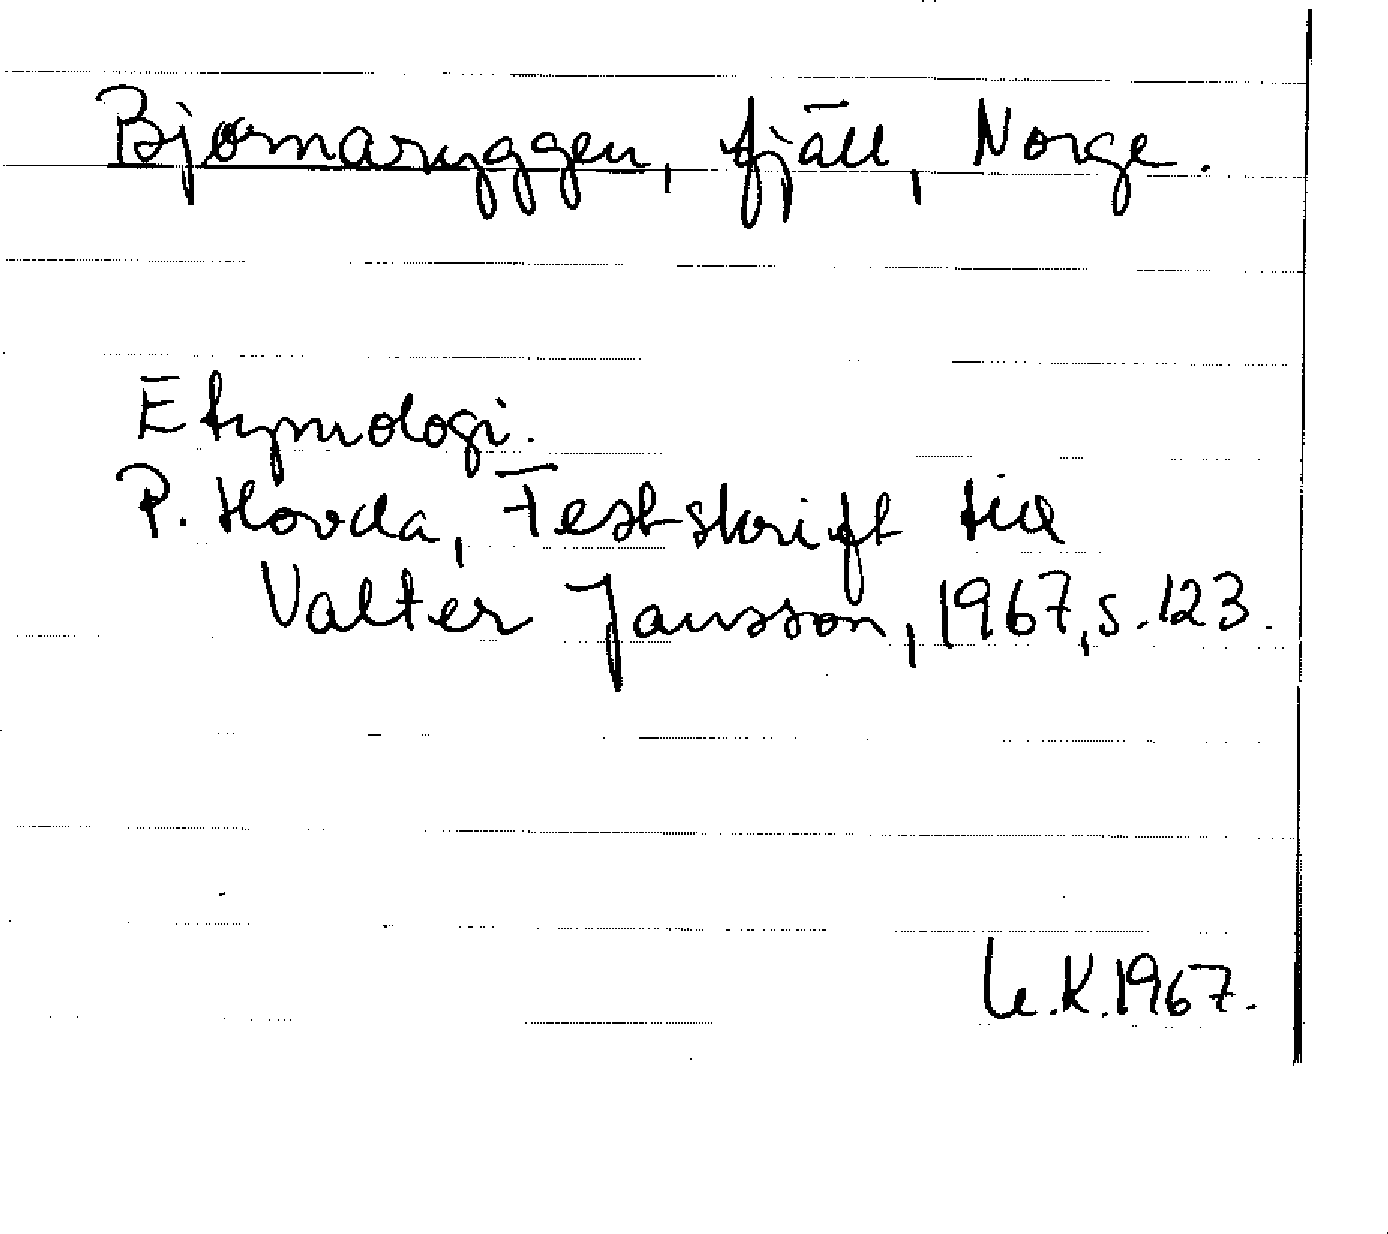 Bjørnaryggen, fjäll, Norge.
Etymologi.
P. Hovda, Festskrift till
Valter Jansson, 1967, s. 123.
Le.K. 1967.